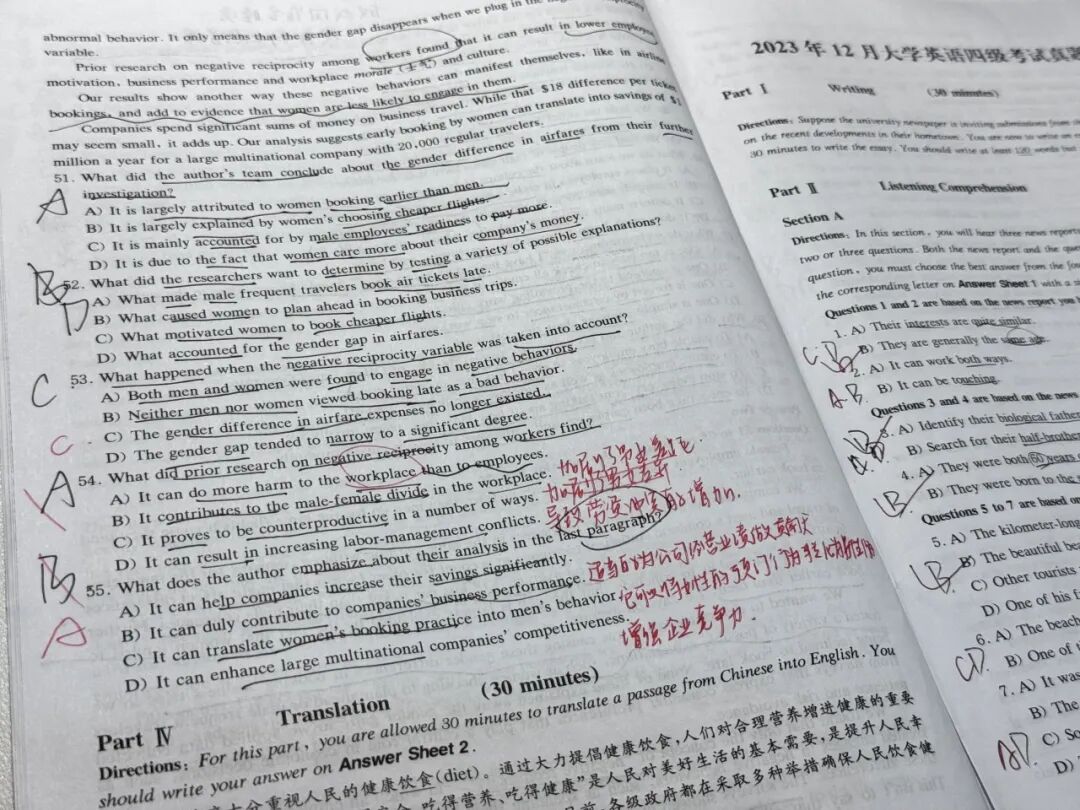 abnormal behavior. It only means that the gender gap disappears when we plug in the
variable.
Prior research on negative reciprocity among workers found that it can result in lower employee
motivation, business performance and workplace morale (士气) and culture.
Our results show another way these negative behaviors can manifest themselves, like in airline
bookings, and add to evidence that women are less likely to engage in them.
Companies spend significant sums of money on business travel. While that $18 difference per ticket
may seem small, it adds up. Our analysis suggests early booking by women can translate into savings of $1
million a year for a large multinational company with 20,000 regular travelers.
51. What did the author's team conclude about the gender difference in airfares from their further
investigation?
A
A) It is largely attributed to women booking earlier than men.
B) It is largely explained by women's choosing cheaper flights.
C) It is mainly accounted for by male employees' readiness to pay more.
D) It is due to the fact that women care more about their company's money.
52. What did the researchers want to determine by testing a variety of possible explanations?
B
D
A) What made male frequent travelers book air tickets late.
B) What caused women to plan ahead in booking business trips.
C) What motivated women to book cheaper flights.
D) What accounted for the gender gap in airfares.
53. What happened when the negative reciprocity variable was taken into account?
C
A) Both men and women were found to engage in negative behaviors.
B) Neither men nor women viewed booking late as a bad behavior.
C) The gender difference in airfare expenses no longer existed.
D) The gender gap tended to narrow to a significant degree.
54. What did prior research on negative reciprocity among workers find?
C
A
A) It can do more harm to the workplace than to employees.
B) It contributes to the male-female divide in the workplace.
C) It proves to be counterproductive in a number of ways.
D) It can result in increasing labor-management conflicts.
加剧了男女差距
导致劳资冲突的增加.
55. What does the author emphasize about their analysis in the last paragraph?
B
A
A) It can help companies increase their savings significantly.
B) It can duly contribute to companies' business performance.
C) It can translate women's booking practice into men's behavior.
D) It can enhance large multinational companies' competitiveness.
适当的为公司经营业绩做贡献
增强企业竞争力.
Part Ⅳ Translation (30 minutes)
Directions: For this part, you are allowed 30 minutes to translate a passage from Chinese into English. You
should write your answer on Answer Sheet 2.
十分重视人民的健康饮食(diet)。通过大力提倡健康饮食,人们对合理营养增进健康的重要
吃得营养、吃得健康”是人民对美好生活的基本需要,是提升人民幸
各级政府都在采取多种举措确保人民饮食健
2023 年 12 月大学英语四级考试真题
Part Ⅰ Writing (30 minutes)
Directions: Suppose the university newspaper is inviting submissions from
on the recent developments in their hometown. You are now to write an
30 minutes to write the essay. You should write at least 120 words but
Part Ⅱ Listening Comprehension
Section A
Directions: In this section, you will hear three news reports
two or three questions. Both the news report and the
question, you must choose the best answer from the
the corresponding letter on Answer Sheet 1 with a
Questions 1 and 2 are based on the news report you
1. A) Their interests are quite similar.
B) They are generally the same age.
2. A) It can work both ways.
B) It can be touching.
Questions 3 and 4 are based on the news
3. A) Identify their biological
B) Search for their
4. A) They were both 60 years
B) They were born to the
Questions 5 to 7 are based on
5. A) The kilometer-long
B) The beautiful
C) Other tourists
D) One of his
6. A) The beach
B) One of
7. A) It was
B) The
C)
D)